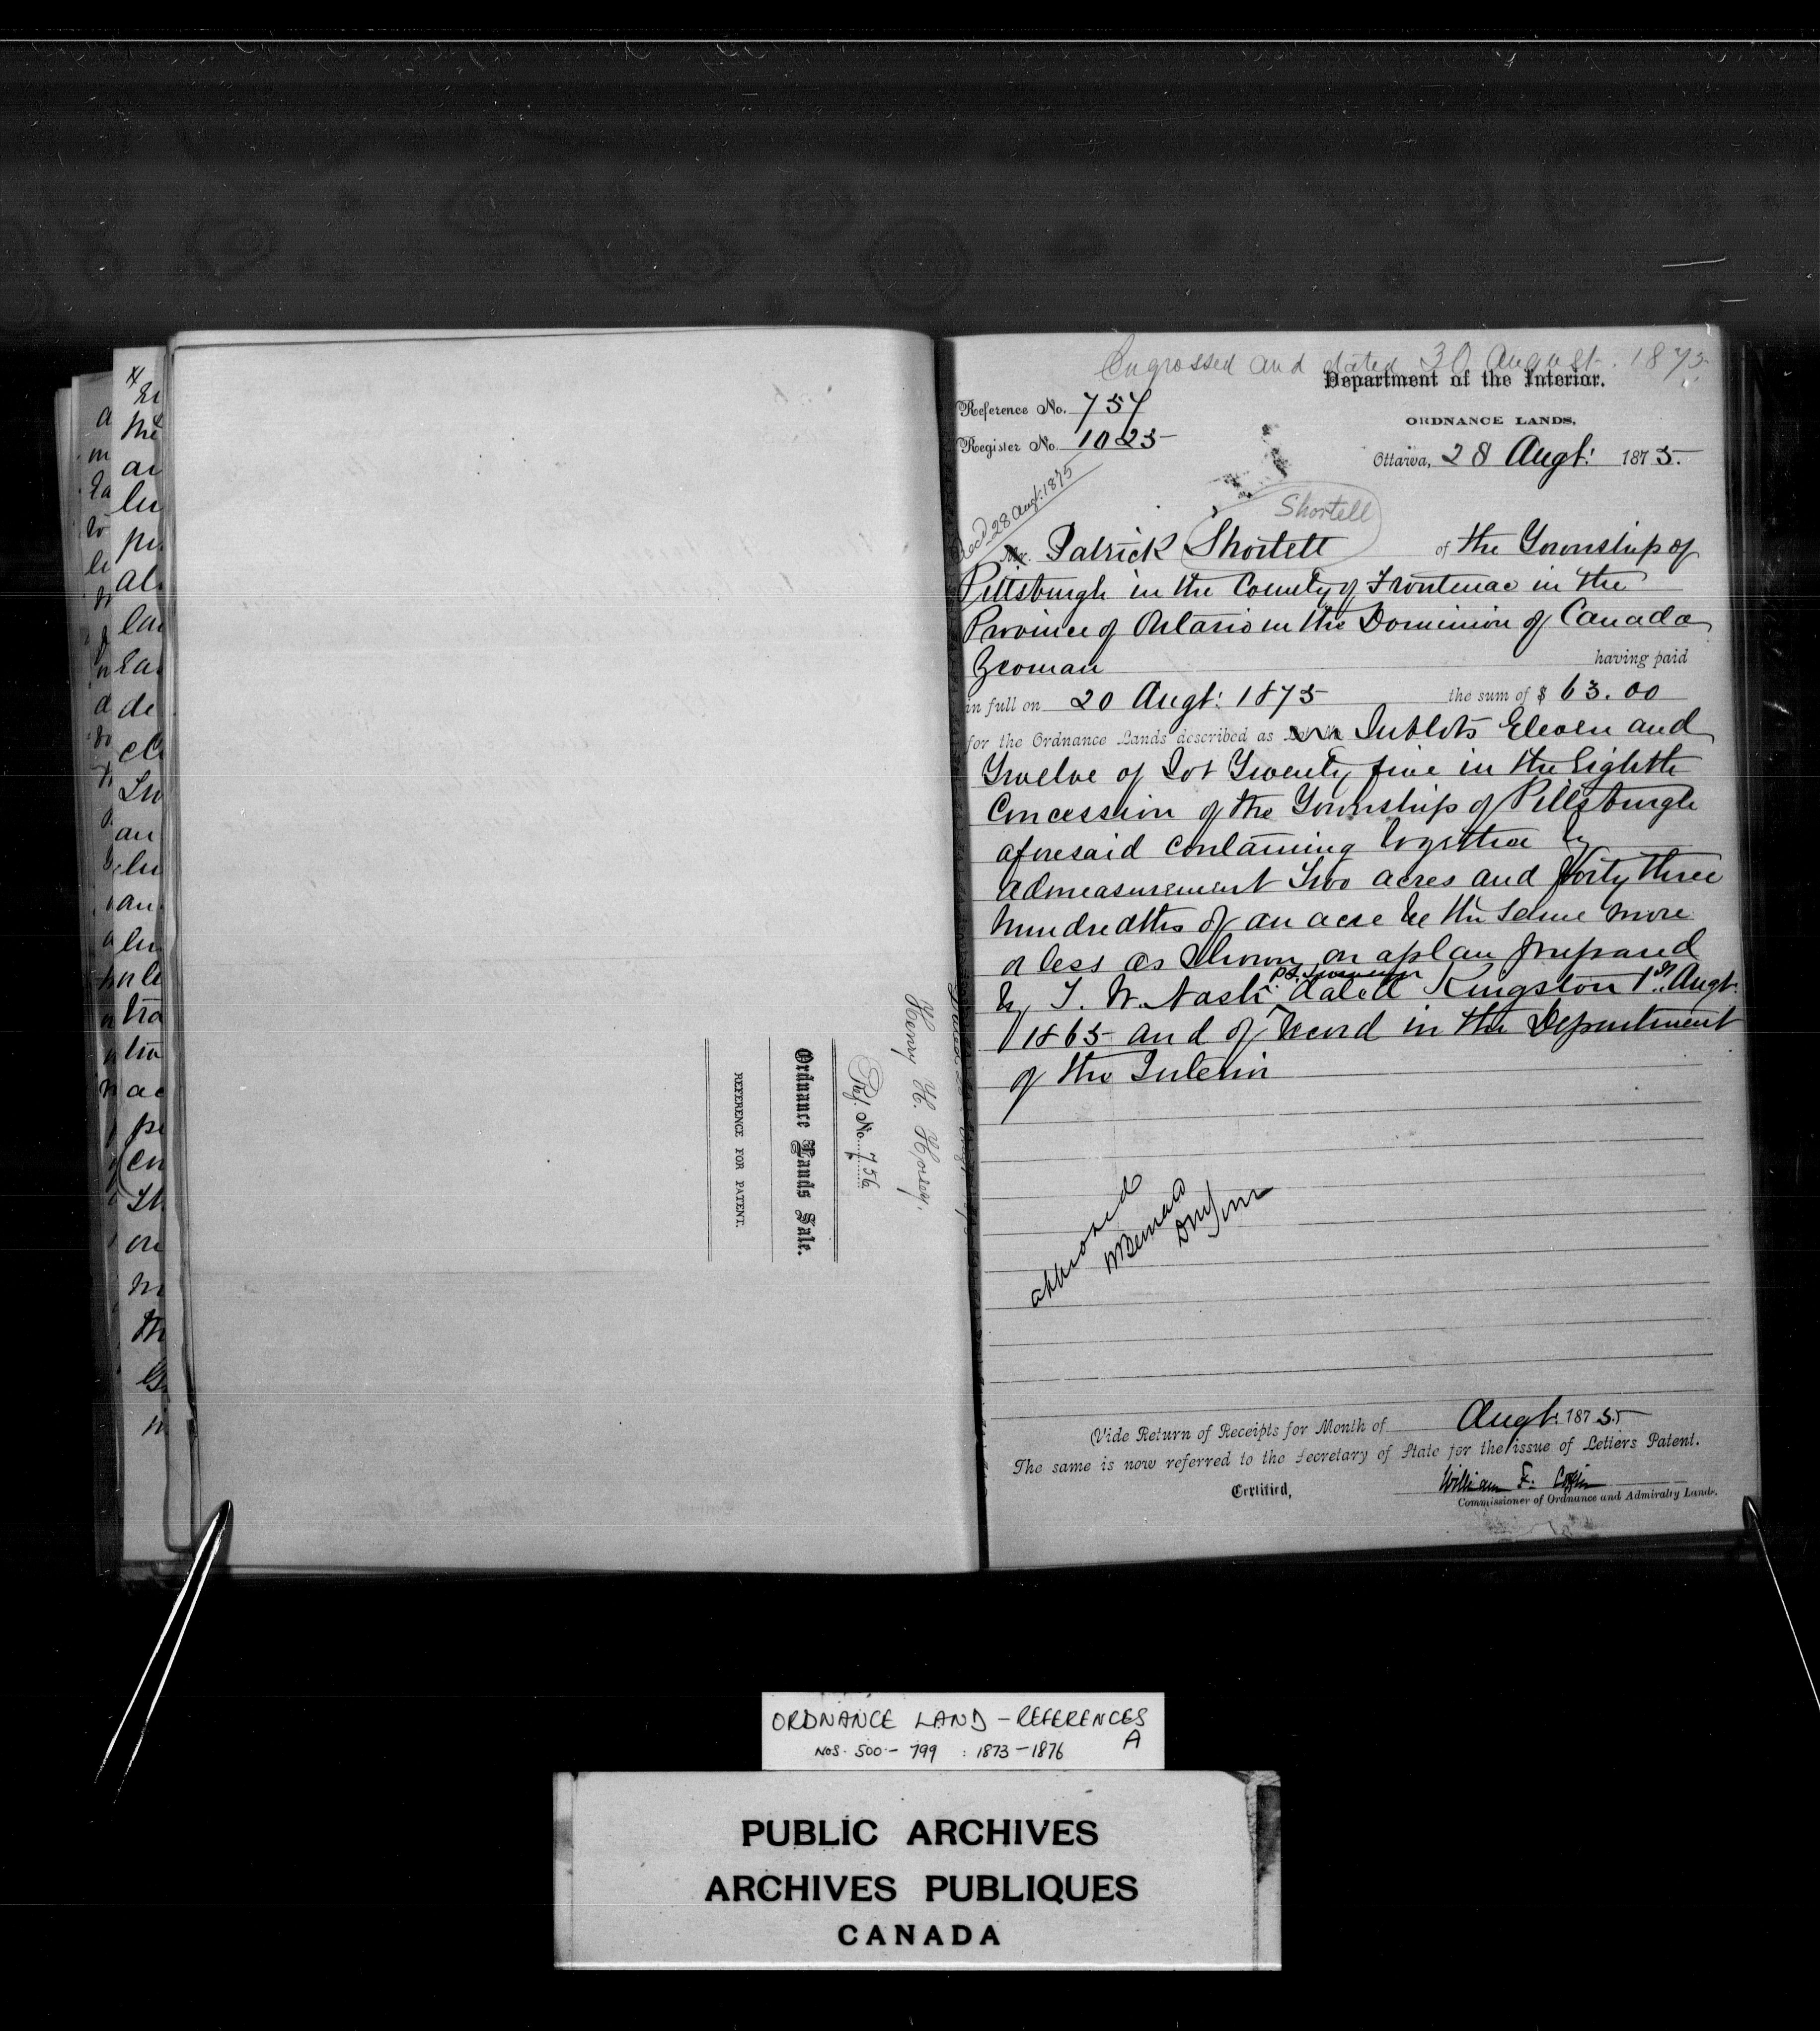 Engrossed and dated 30 August. 1875
Department of the Interior.
Reference No. 757
ORDNANCE LANDS,
Register No. 1025
Ottawa, 28 Augt: 1875.
Recd. 28 Augt. 1875
Shortell
Mr. Patrick Shortett of the Township of
Pittsburgh in the County of Frontenac in the
Province of Ontario in the Dominion of Canada
Yeoman having paid
in full on 20 Augt: 1875 the sum of $ 63.00
for the Ordnance Lands described as Sublots Eleven and
Twelve of Lot Twenty five in the Eighth
Concession of the Township of Pittsburgh
aforesaid containing together by
admeasurement Two acres and forty three
hundredths of an acre be the same more
or less as shown on a plan prepared
P.L. Surveyor
by T. W. Nash: dated Kingston 1st. Augt.
1865 and of record in the Department
of the Interior
approved
H Bernard
DMJ
(Vide Return of Receipts for Month of Augt. 1875.
The same is now referred to the Secretary of State for the issue of Letters Patent.
Certified,
William F. Coffin
Commissioner of Ordnance and Admiralty Lands.
Henry H. Horsey.
Ref. No. 756
Ordnance Lands Sale.
REFERENCE FOR PATENT.
ORDNANCE LAND – REFERENCES
NOS. 500 – 799 : 1873 – 1876 A
PUBLIC ARCHIVES
ARCHIVES PUBLIQUES
CANADA